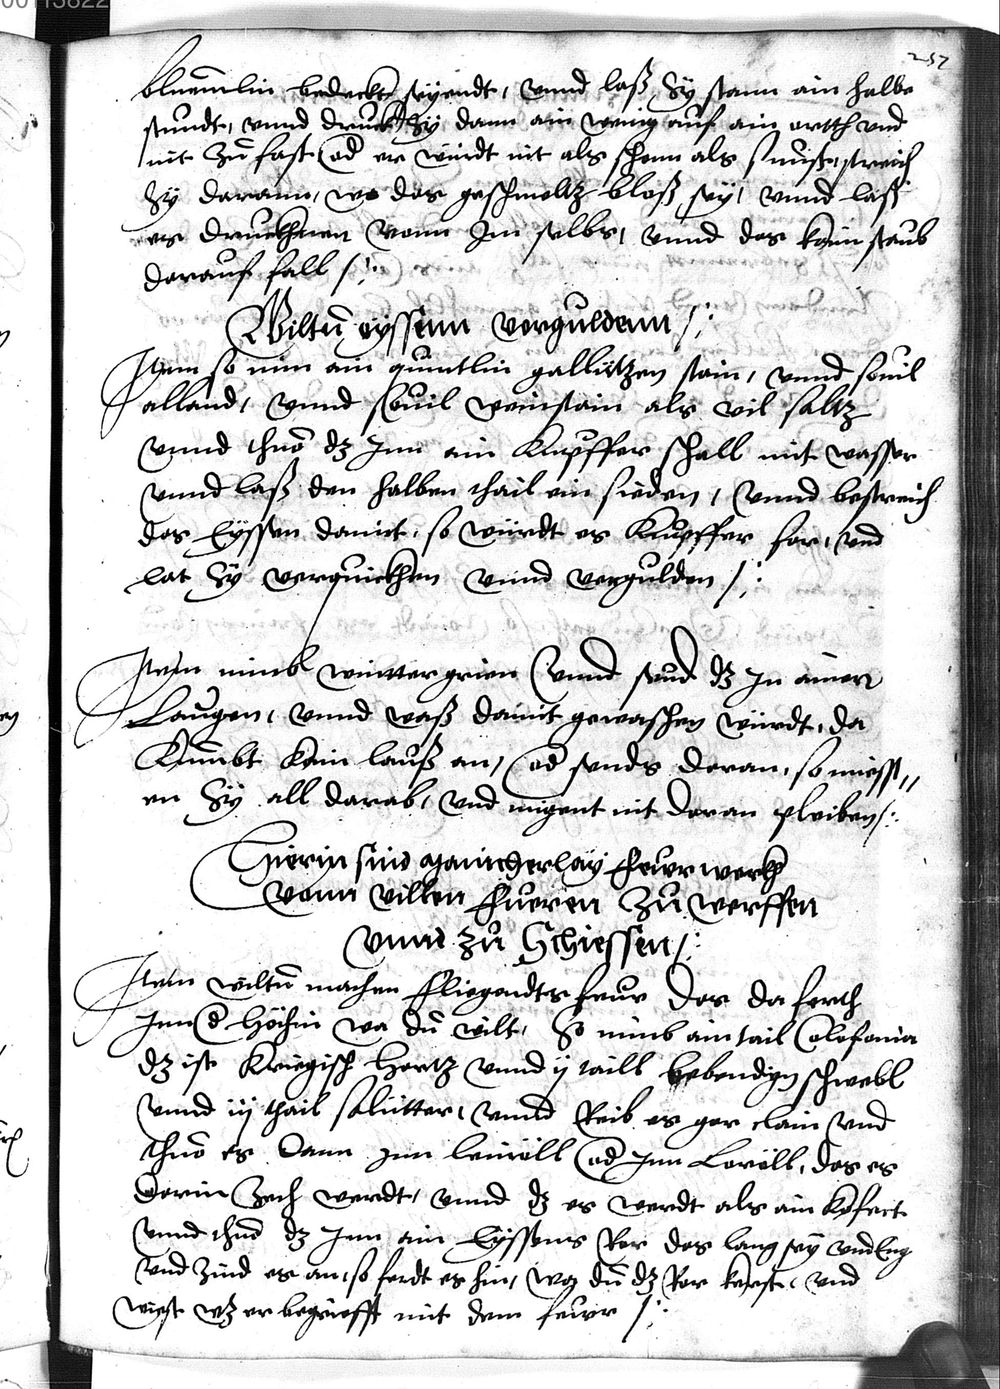 00113822
257
bluemlin bedeckt seyendt, vnnd laß Sy stann ain halbe
stundt, vnnd druckh Sy dann ain wenig auf ain ortth vnd
nit Zů fast od er würdt nit als schenn als sunst, streich
Sy darann, wo das geschmeltz bloß sey, vnnd laß
es druckhnen vonn Im selbs, vnnd das kain staub
darauf fall /:
Wiltů eyssenn vergüldenn /:
Item so nim ain quintlin gallitzen stain, vnnd souil
alland, vnnd souil weinstain als vil saltz
vnnd thuo dz Inn ain Kupffer schall mit wasser
vnnd laß den halben thail ein sieden, vnnd bestreich
das Eyssen damit, so würdt es Kupffer far, vnd
lat Sy verquickhen vnnd vergulden /:
Item nimb wintter grien vnnd seud dz In ainer
Laugen, vnnd waß damit gewaschen würdt, da
Kumbt kain lauß an, od sends daran, so miess„
en Sy all darab, vnd migent nit daran pleiben /:
Hierin sind mancherlay feurwerkh
vonn villen fueren Zů werffen
vnnd zů Schiessen /:
Item wiltů machen fliegendts feur das da farth
Inn d Höchin wa dů wilt, So nimb ain tail Colofonia
dz ist kriegisch Hartz vnnd ij taill lebendigen schwebl
vnnd iij thail salitter, vnnd Reib es gar clain vnd
thuo es dann Inn leinöll od Inn Loröll, das es
darin Zech werdt, vnnd dz es werdt als ain kofect
vnnd thuo dz Inn ain Eyssens Ror das lang sey vnd Eng
vnd Zünd es an, so ferdt es hin, wa dů dz Ror kerst, vnd
wiest wz er begriefft mit dem feurr /: